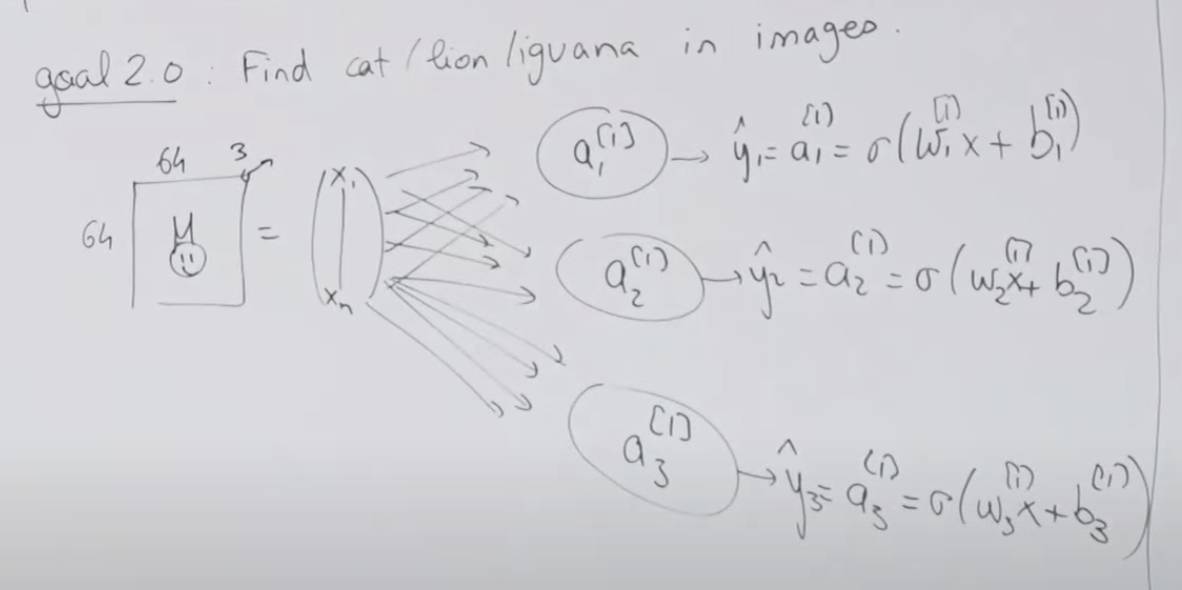 goal 2.0 : Find cat / lion / iguana in images.
64 3
64 = (x₁ xₙ)
a₁^[1] → ŷ₁ = a₁^[1] = σ(w₁^[1] x + b₁^[1])
a₂^[1] → ŷ₂ = a₂^[1] = σ(w₂^[1] x + b₂^[1])
a₃^[1] → ŷ₃ = a₃^[1] = σ(w₃^[1] x + b₃^[1])